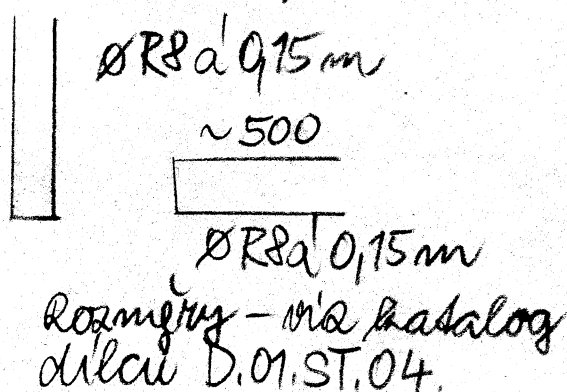 ØR8 á 0,15m
~500
ØR8 á 0,15m
Rozměry - viz katalog
dílců D.01.ST.04.